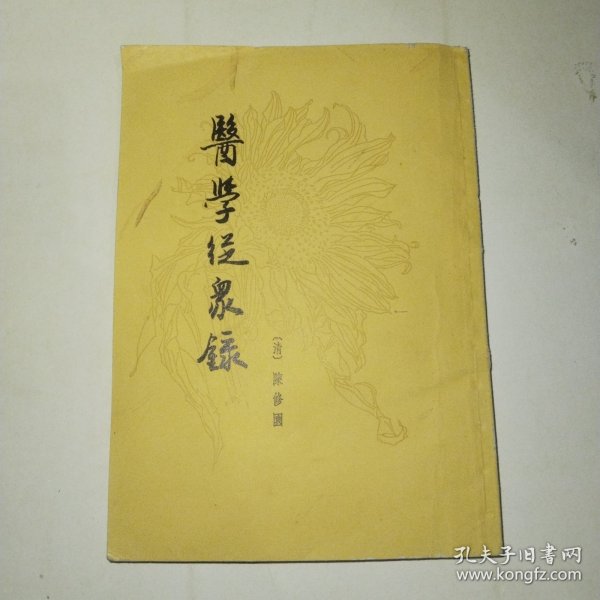 醫學從衆錄
〔清〕陳修園
孔夫子旧书网
www.kongfz.com